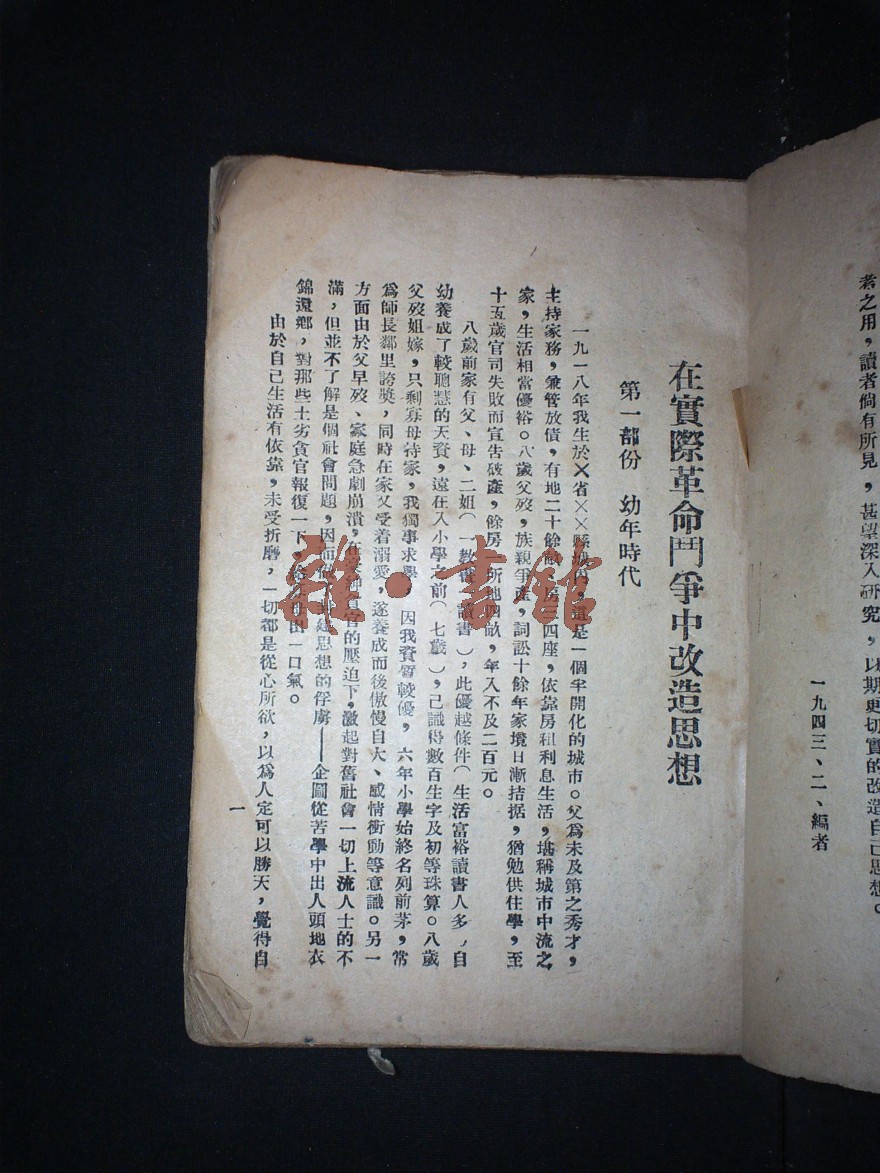 者之用，讀者倘有所見，甚望深入研究，以期更切實的改造自己思想。
一九四三、二、編者
在實際革命鬥爭中改造思想
第一部份　幼年時代
一九一八年我生於×省××縣城內，這是一個半開化的城市。父爲未及第之秀才，
主持家務，兼管放債，有地二十餘畝，房三四座，依靠房租利息生活，堪稱城市中流之
家，生活相當優裕。八歲父歿，族親爭產，詞訟十餘年家境日漸拮据，猶勉供住學，至
十五歲官司失敗而宣告破產，餘房一所地四畝，年入不及二百元。
八歲前家有父、母、二姐（一教書一讀書），此優越條件（生活富裕讀書人多，）自
幼養成了較聰慧的天資，遠在入小學之前（七歲），己識得數百生字及初等珠算。八歲
父歿姐嫁，只剩寡母持家，我獨事求學　因我資質較優，六年小學始終名列前茅，常
爲師長鄰里誇獎，同時在家又受着溺愛，遂養成而後傲慢自大、感情衝動等意識。另一
方面由於父早歿、家庭急劇崩潰，在受 官的壓迫下，激起對舊社會一切上流人士的不
滿，但並不了解是個社會問題，因而做 建思想的俘虜——企圖從苦學中出人頭地衣
錦還鄉，對那些土劣貪官報復一下， 出一口氣。
由於自己生活有依靠，未受折磨，一切都是從心所欲，以爲人定可以勝天，覺得自
一
雜·書館